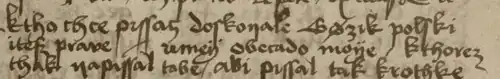 ktho chce pissacz doskonale yøzik polski
itesz prave / umey obecado moye / kthorez
thak napissal tobe / abi pissal tak krothke